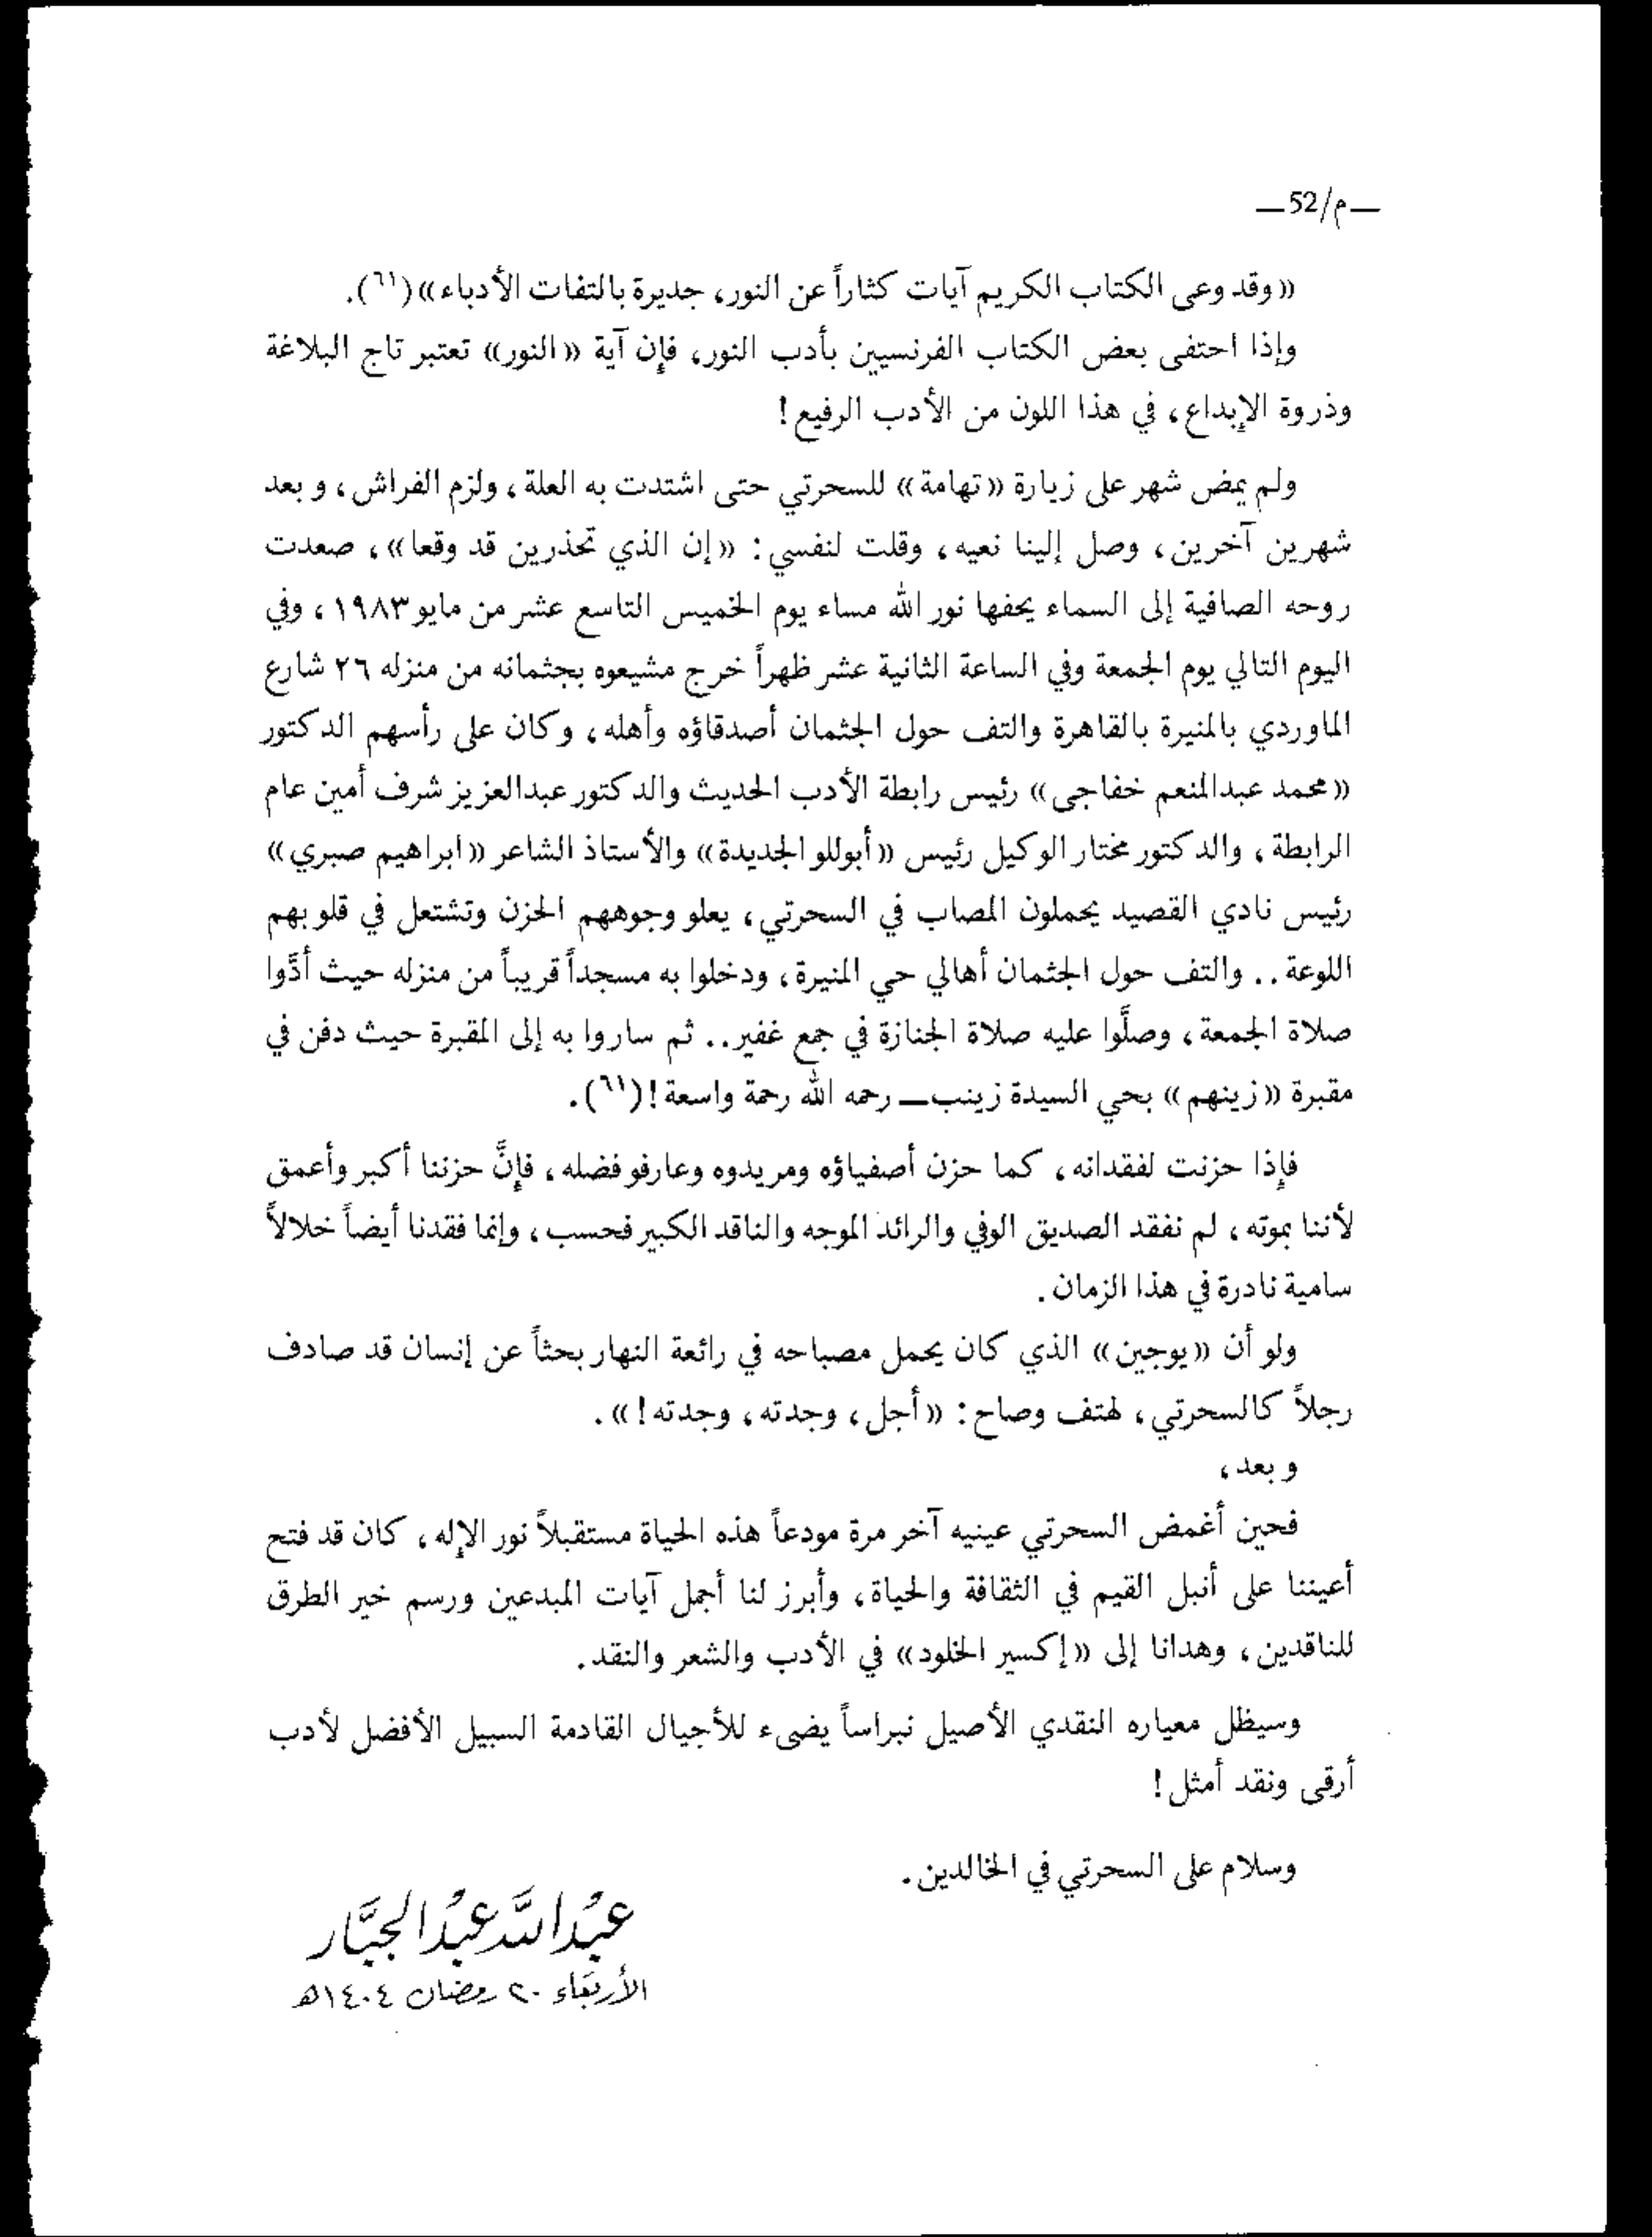 — م/52 —
«وقد وعى الكتاب الكريم آيات كثاراً عن النور، جديرة بالتفات الأدباء» (٦١).
وإذا احتفى بعض الكتاب الفرنسيين بأدب النور، فإن آية «النور» تعتبر تاج البلاغة
وذروة الإبداع، في هذا اللون من الأدب الرفيع!
ولم يمض شهر على زيارة «تهامة» للسحرتي حتى اشتدت به العلة، ولزم الفراش، وبعد
شهرين آخرين، وصل إلينا نعيه، وقلت لنفسي: «إن الذي تحذرين قد وقعا»، صعدت
روحه الصافية إلى السماء يحفها نور الله مساء يوم الخميس التاسع عشر من مايو ١٩٨٣، وفي
اليوم التالي يوم الجمعة وفي الساعة الثانية عشر ظهراً خرج مشيعوه بجثمانه من منزله ٢٦ شارع
الماوردي بالمنيرة بالقاهرة والتف حول الجثمان أصدقاؤه وأهله، وكان على رأسهم الدكتور
«محمد عبدالمنعم خفاجى» رئيس رابطة الأدب الحديث والدكتور عبدالعزيز شرف أمين عام
الرابطة، والدكتور مختار الوكيل رئيس «أبوللو الجديدة» والأستاذ الشاعر «ابراهيم صبري»
رئيس نادي القصيد يحملون المصاب في السحرتي، يعلو وجوههم الحزن وتشتعل في قلوبهم
اللوعة.. والتف حول الجثمان أهالي حي المنيرة، ودخلوا به مسجداً قريباً من منزله حيث أدَّوا
صلاة الجمعة، وصلَّوا عليه صلاة الجنازة في جمع غفير.. ثم ساروا به إلى المقبرة حيث دفن في
مقبرة «زينهم» بحي السيدة زينب — رحمه الله رحمة واسعة! (٦١).
فإذا حزنت لفقدانه، كما حزن أصفياؤه ومريدوه وعارفو فضله، فإنَّ حزننا أكبر وأعمق
لأننا بموته، لم نفقد الصديق الوفي والرائد الموجه والناقد الكبير فحسب، وإنما فقدنا أيضاً خلالاً
سامية نادرة في هذا الزمان.
ولو أن «يوجين» الذي كان يحمل مصباحه في رائعة النهار بحثاً عن إنسان قد صادف
رجلاً كالسحرتي، لهتف وصاح: «أجل، وجدته، وجدته!».
وبعد،
فحين أغمض السحرتي عينيه آخر مرة مودعاً هذه الحياة مستقبلاً نور الإله، كان قد فتح
أعيننا على أنبل القيم في الثقافة والحياة، وأبرز لنا أجمل آيات المبدعين ورسم خير الطرق
للناقدين، وهدانا إلى «إكسير الخلود» في الأدب والشعر والنقد.
وسيظل معياره النقدي الأصيل نبراساً يضىء للأجيال القادمة السبيل الأفضل لأدب
أرقى ونقد أمثل!
وسلام على السحرتي في الخالدين.
عبْدُ اللَّه عبْدُ الجبَّار
الأربعَاء ٢٠ رمضان ١٤٠٤هـ